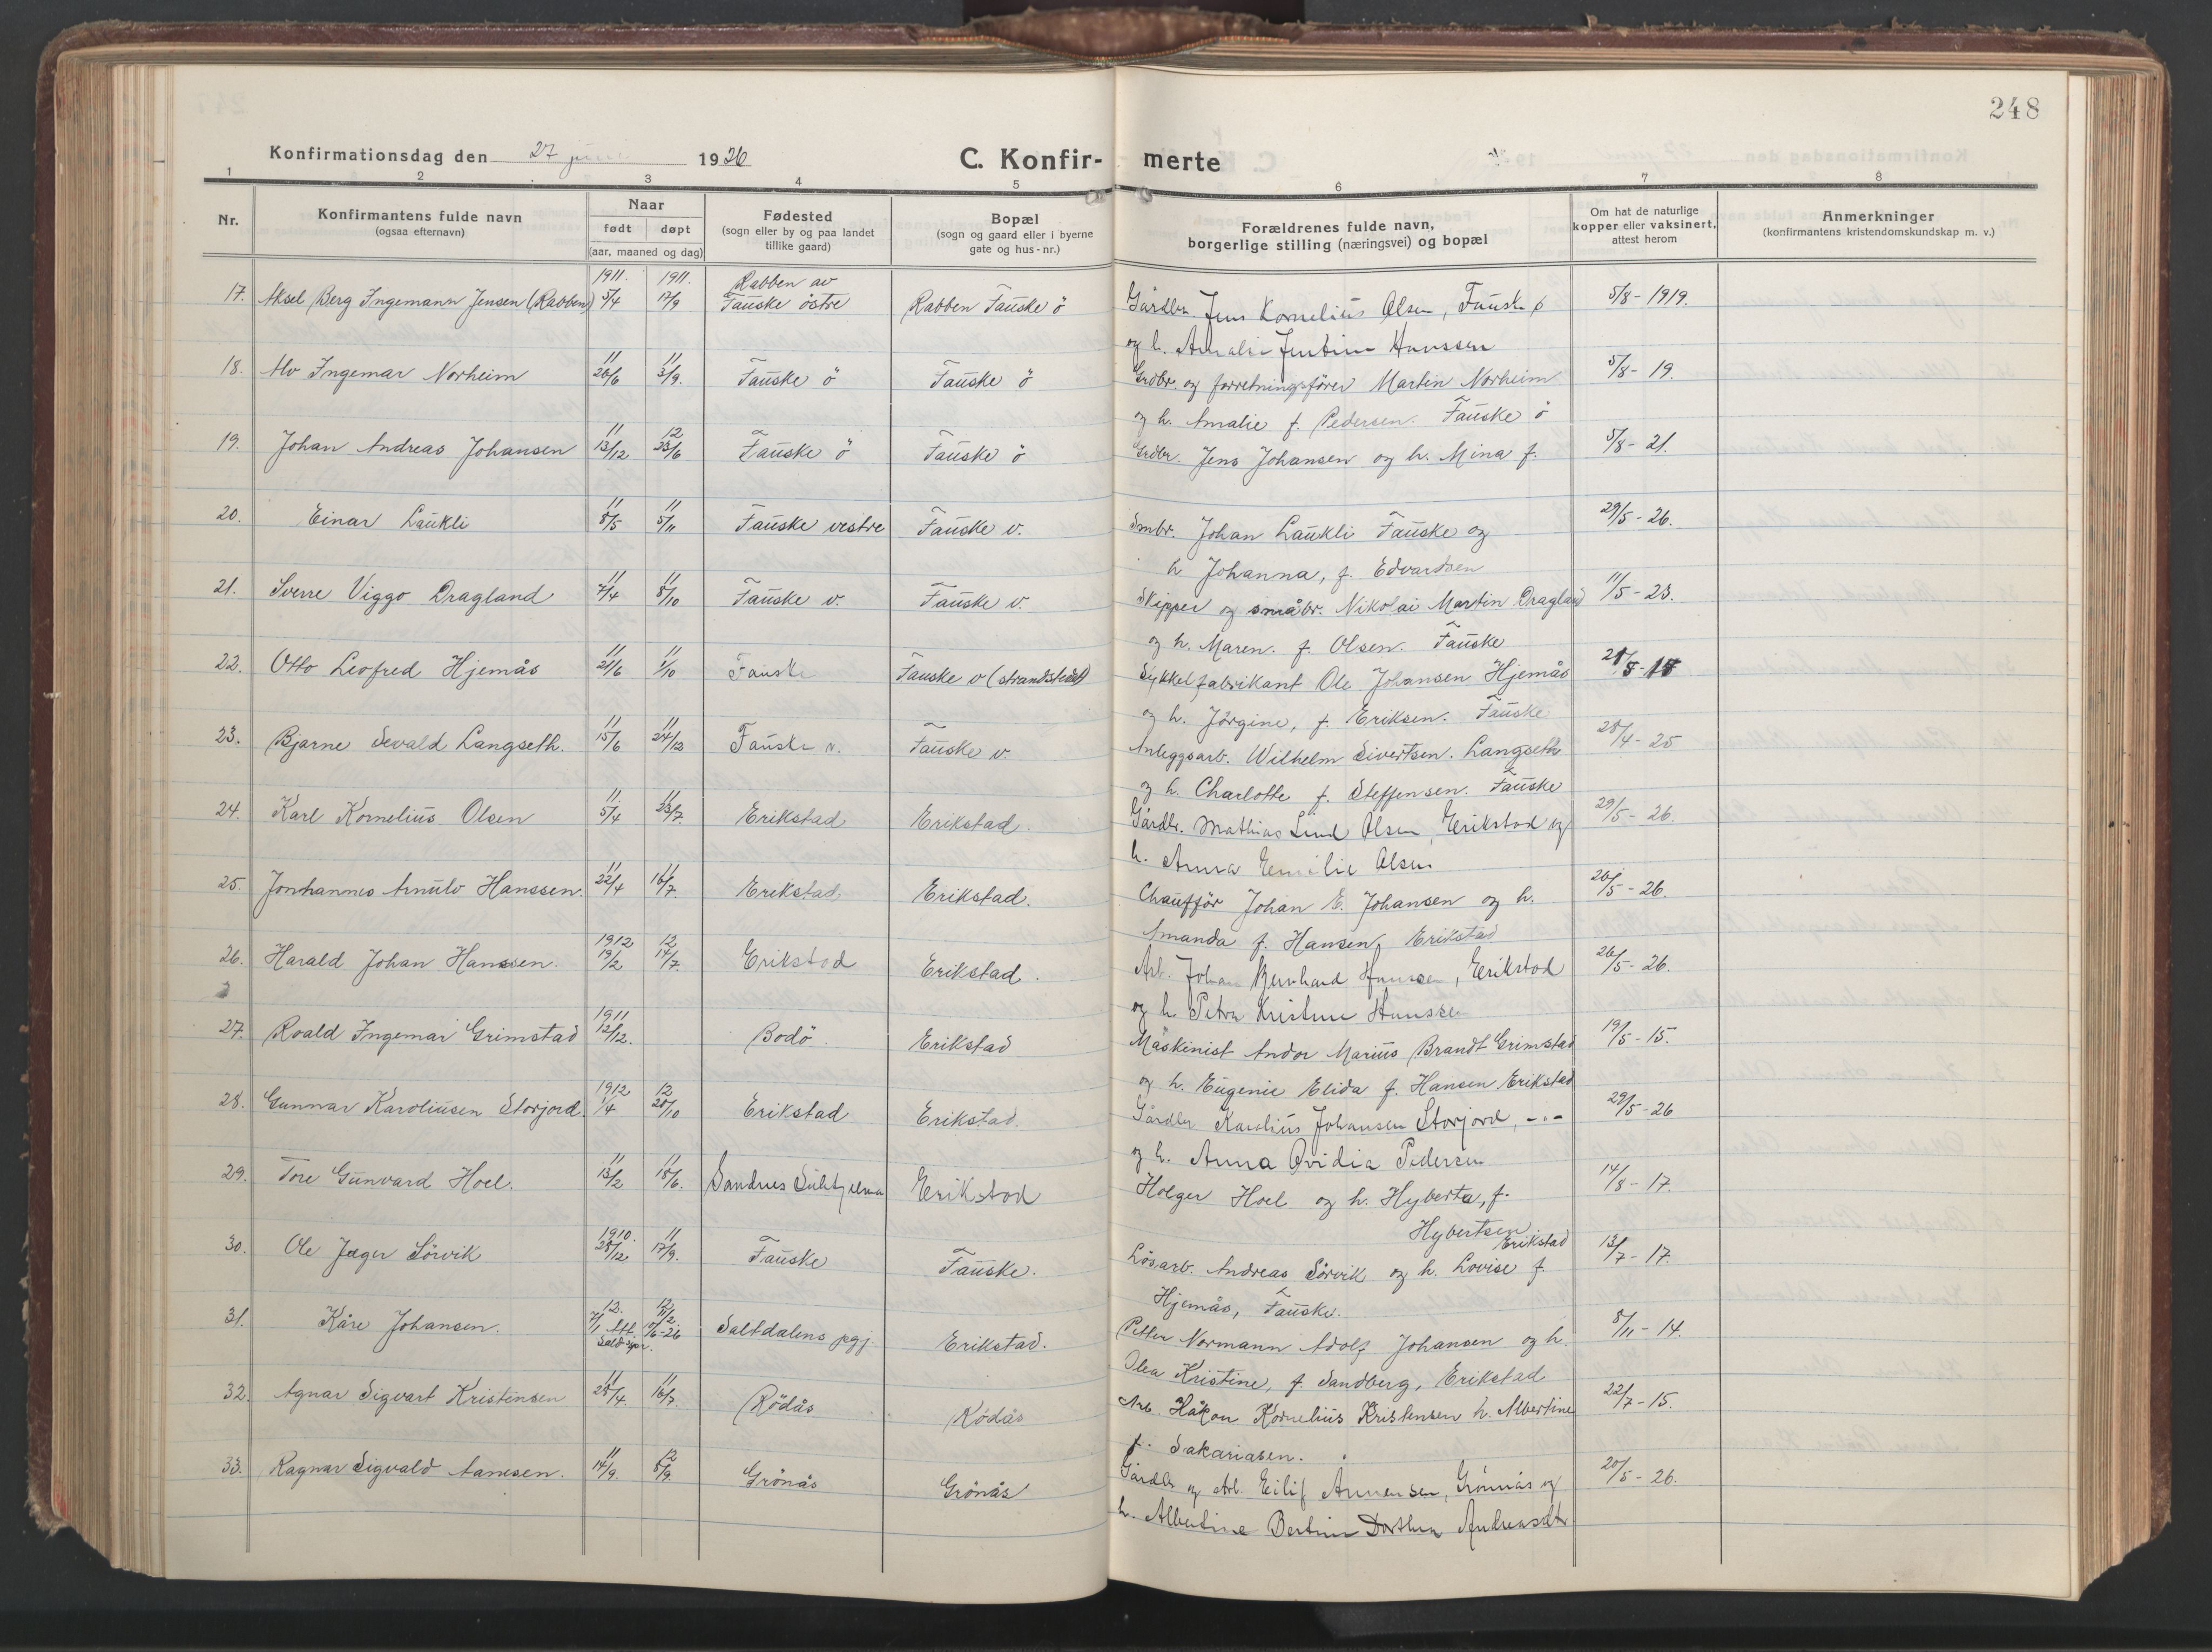 248
Konfirmationsdag den 27 juni 1926
C. Konfir-merte
1 2 3 4 5 6 7 8
Nr.
Konfirmantens fulde navn
(ogsaa efternavn)
Naar
født døpt
(aar, maaned og dag)
Fødested
(sogn eller by og paa landet
tillike gaard)
Bopæl
(sogn og gaard eller i byerne
gate og hus-nr.)
Forældrenes fulde navn,
borgerlige stilling (næringsvei) og bopæl
Om hat de naturlige
kopper eller vaksinert,
attest herom
Anmerkninger
(konfirmantens kristendomskundskap m. v.)
1911. 1911. Rabben av
17. Aksel Berg Ingemann Jensen (Rabben) 5/4 17/9 Fauske östre Rabben Fauske ö Gårdbr. Jens Kornelius Olsen, Fauske ö 5/8-1919.
og h. Amalie Jentine Hanssen
11 11
18. Alv Ingemar Norheim 26/6 3/9. Fauske ö Fauske ö Grdbr. og forretningsförer Martin Norheim 5/8-19.
og h. Amalie f. Pedersen. Fauske ö
11 12
19. Johan Andreas Johansen 13/12 23/6 Fauske ö Fauske ö Grdbr. Jens Johansen og h. Mina f. 5/8-21.
11 11
20. Einar Laukli 8/5 5/11 Fauske vestre Fauske v. Smbr. Johan Laukli Fauske og 29/5-26.
h Johanna, f. Edvardsen
11 11
21. Sverre Viggo Dragland 7/4 8/10 Fauske v. Fauske v. Skipper og småbr. Nikolai Martin Dragland 11/5-23.
og h. Maren. f. Olsen. Fauske
11 11
22. Otto Leofred Hjemås 21/6 1/10 Fauske Fauske v (strandstedet) Sykkelfabrikant Ole Johansen Hjemås
og h. Jörgine, f. Eriksen. Fauske
11 11
23. Bjarne Sevald Langseth. 15/6 24/12 Fauske v. Fauske v. Anleggsarb. Wilhelm Sivertsen. Langseth 28/4-25
og h. Charlotte f. Steffensen. Fauske
11. 11
24. Karl Kornelius Olsen 5/4 23/7. Erikstad Erikstad. Gårdbr. Mathias Lund Olsen, Erikstad og 29/5-26.
h. Anna Emilie Olsen
11 11
25. Jonhannes Arnulv Hanssen. 22/4 16/7. Erikstad Erikstad. Chaufför Johan E. Johansen og h. 26/5-26.
Amanda f. Hansen, Erikstad
1912 12
26. Harald Johan Hanssen. 19/2 14/7. Erikstad Erikstad. Arb. Johan Bernhard Hanssen, Erikstad 26/5-26.
og h. Petra Kristine Hanssen
1911
27. Roald Ingemar Grimstad 12/12. Bodö. Erikstad Maskinist Andor Marius Brandt Grimstad 19/5-15.
og h. Eugenie Elida f. Hansen Erikstad
1912 12
28. Gunnar Karoliussen Storjord. 1/4 20/10 Erikstad Erikstad. Gårdbr Karolius Johansen Storjord, -"- 29/5-26
og h. Anna Ovidia Pedersen
11 11
29. Tore Gunvard Hoel. 13/2 18/6. Sandnes Sulitjelma Erikstad Holger Hoel og h. Hyberta, f. 14/8-17.
Hybertsen. Erikstad
1910. 11
30. Ole Jæger Sörvik 28/12 17/9. Fauske Fauske. Lösarb. Andreas Sörvik og h. Lovise f. 13/7-17.
Hjemås, Fauske.
12. 12.
31. Kåre Johansen. 7/1 Att. 11/2. Saltdalens pgj. Erikstad. Petter Normann Adolf Johansen og h. 8/11-14.
Olea Kristine, f. Sandberg, Erikstad
11 11
32. Agnar Sigvart Kristensen 28/4. 16/7. Rödås Rödås Arb. Håkon Kornelius Kristensen h. Albertine 22/7-15.
f. Sakariasen.
11 12
33. Ragnar Sigvald Aamesen. 14/9. 8/9. Grönås Grönås Gårdbr og Arb. Eilif Amensen, Grönnås og 20/5-26.
h. Albertine Bertine Dorthea Andreasdtr